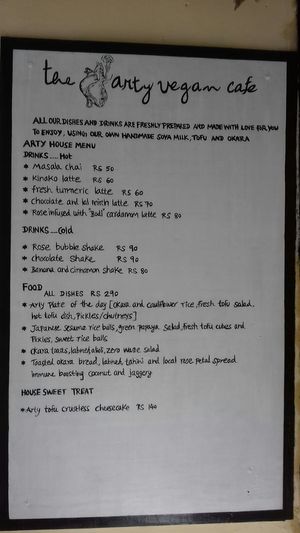 the arty vegan cafe
ALL OUR DISHES AND DRINKS ARE FRESHLY PREPARED AND MADE WITH LOVE FOR YOU
TO ENJOY, USING OUR OWN HANDMADE SOYA MILK, TOFU AND OKARA
ARTY HOUSE MENU
DRINKS....Hot
* Masala chai RS 50
* Kinako latte RS 60
* fresh turmeric latte RS 60
* Chocolate and red reishi latte RS 70
* Rose infused with "Bodi" cardamon latte RS 80
DRINKS...Cold
* Rose bubble shake RS 90
* chocolate shake RS 90
* Banana and cinnamon shake RS 80
FOOD
ALL DISHES RS 290
* Arty Plate of the day [Okara and cauliflower rice, fresh tofu salad,
hot tofu dish, Pickles/chutneys]
* Japanese sesame rice balls, green papaya salad, fresh tofu cubes and
Pickles, sweet rice balls
* Okara tacos, labneh, zero waste salad
* Toasted okara bread, labneh, tahini and local rose petal spread
immune boosting coconut and jaggery
HOUSE SWEET TREAT
* Arty tofu crustless cheesecake RS 140